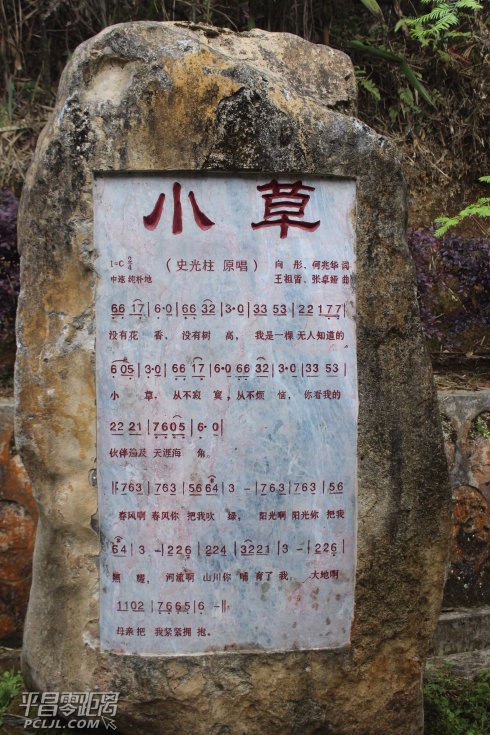 小 草
1=C 2/4 （史光柱 原唱） 向 彤、何兆华 词
中速 纯朴地 王祖皆、张卓娅 曲
66 17|6·0|66 32|3·0|33 53|22 177|
没有花 香，没有树 高，我是一棵 无人知道的
6 05|3·0|66 17|6·0 66 32|3·0|33 53|
小 草，从不寂 寞，从不烦 恼，你看我的
22 21|7605|6·0|
伙伴遍及 天涯海 角。
|763|763|5664|3 -|763|763|56
春风啊 春风你 把我吹 绿，阳光啊 阳光你 把我
64|3 -|226|224|3221|3 -|226|
照 耀，河流啊 山川你 哺育了我，大地啊
1102|7665|6 -‖
母亲把 我紧紧拥 抱。
平昌零距离
PCLJL.COM